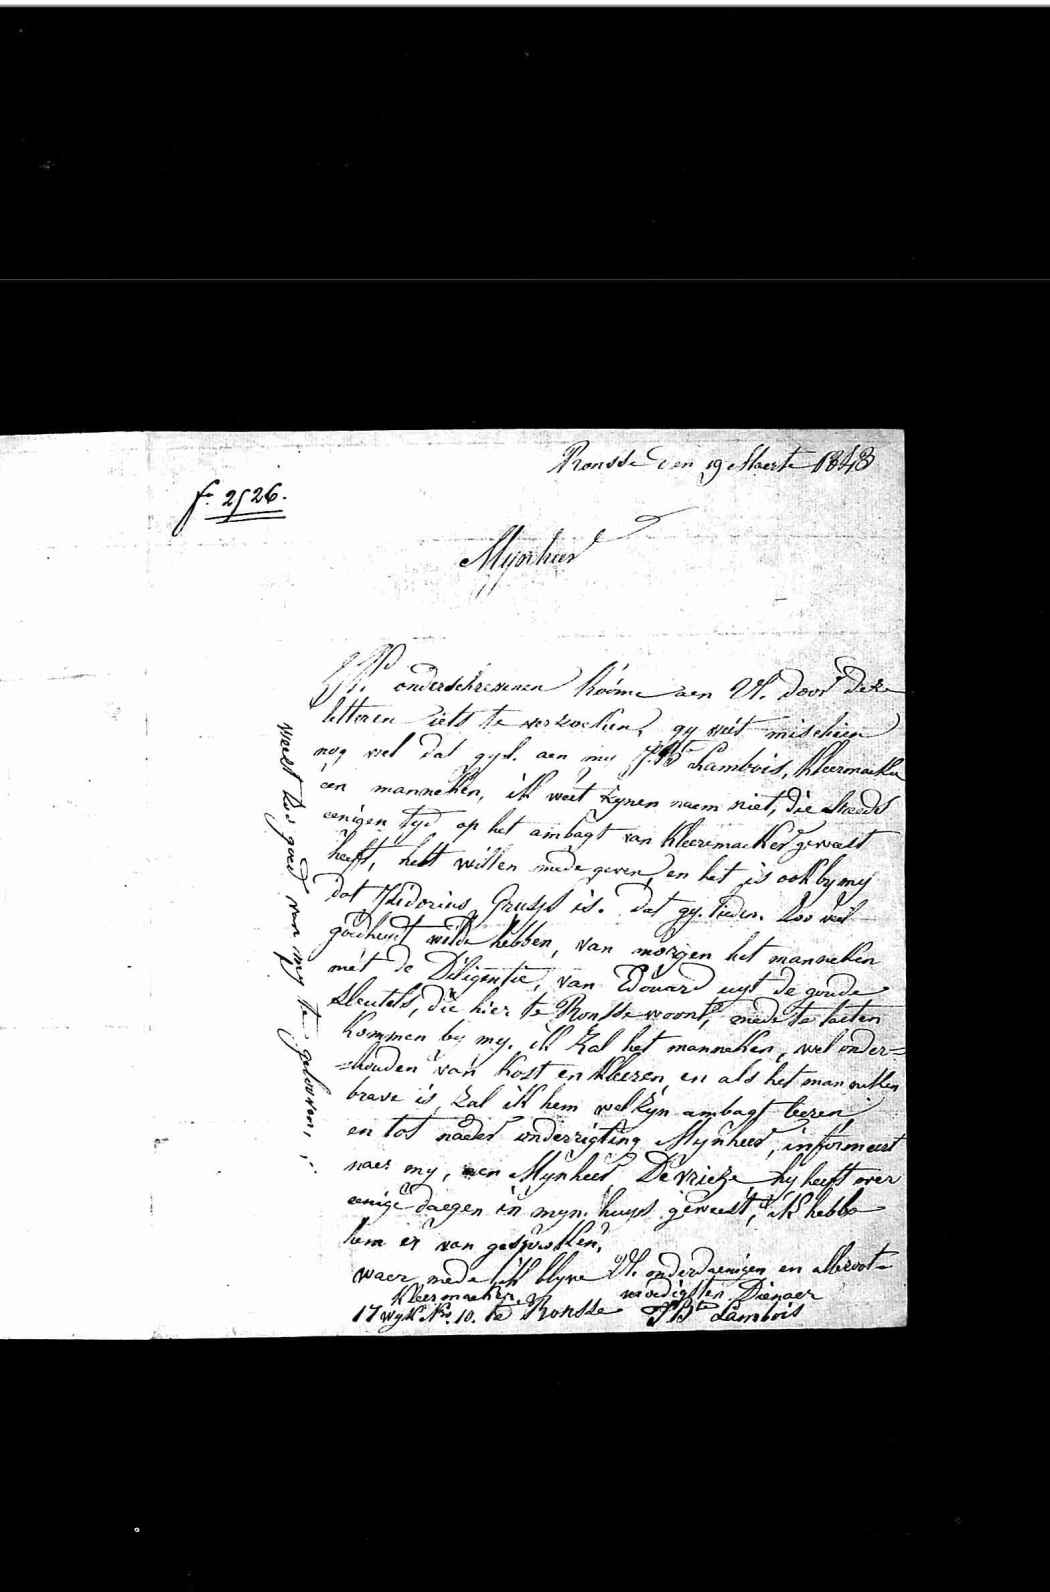 Ronsse den 19 Maerte 1848
f. 2526.
Mynheer
Ik onderschrevenen kóome aen Ul. door deze
letteren iets te verzoeken, gy wéét mischien
nog wel dat gyl. aen my J. Bte Lambois, kleermaeker
éen manneken, ik wéet zynen naem niet, die steeds
eenigen tyd op het ambagt van kleeremaeker geweest
heeft, hebt willen mede geven, en het is ook by my
dat Isidorius is. dat gy. lieden. Zoo veel
goedheyt wilde hebben, van morgen het manneken
mét de Diligentie, van Edouard uyt de goude
sleutels, die hier te Ronsse woont, mede te laeten
kommen by my. ik zal het manneken, wel onder=
=houden van kost en kleeren, en als het manneken
brave is, zal ik hem wel zyn ambagt leeren,
en tot nader onderrigting Mynheer, informeert
naer my, aen Mynheer, De Vrieze, hy heeft over
eenige daegen in myn. huys geweest, ik hebbe
hem er van gesproken,
waer mede ik blyve Ul. onderdaenigen en alleroot=
kleermaeker, moedigsten Dienaer
17 wyk Nro 10. te Ronsse J. Bte Lambois
weest zoo goed van my te gelooven,